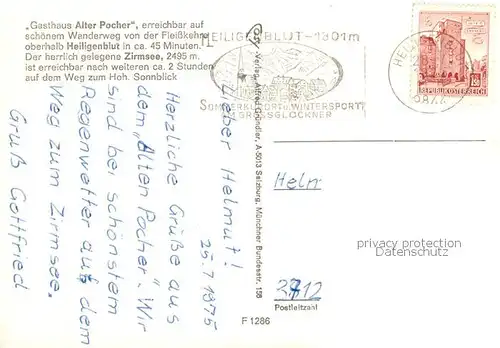 „Gasthaus Alter Pocher", erreichbar auf
schönem Wanderweg von der Fleißkehre
oberhalb Heiligenblut in ca. 45 Minuten.
Der herrlich gelegene Zirmsee, 2495 m,
ist erreichbar nach weiteren ca. 2 Stunden
auf dem Weg zum Hoh. Sonnblick
HEILIGENBLUT-1301m
SOMMERKURORT u. WINTERSPORT
AM GROSSGLOCKNER
REPUBLIK ÖSTERREICH
25.7 1975
Lieber Helmut!
Herzliche Grüße aus
dem „Alten Pocher". Wir
sind bei schönstem
Regenwetter auf dem
Weg zum Zirmsee.
Gruß Gottfried
Verlag Alfred Gründler, A-5013 Salzburg, Münchner Bundesstr. 156
F 1286
Helm
2712
Postleitzahl
privacy protection
Datenschutz